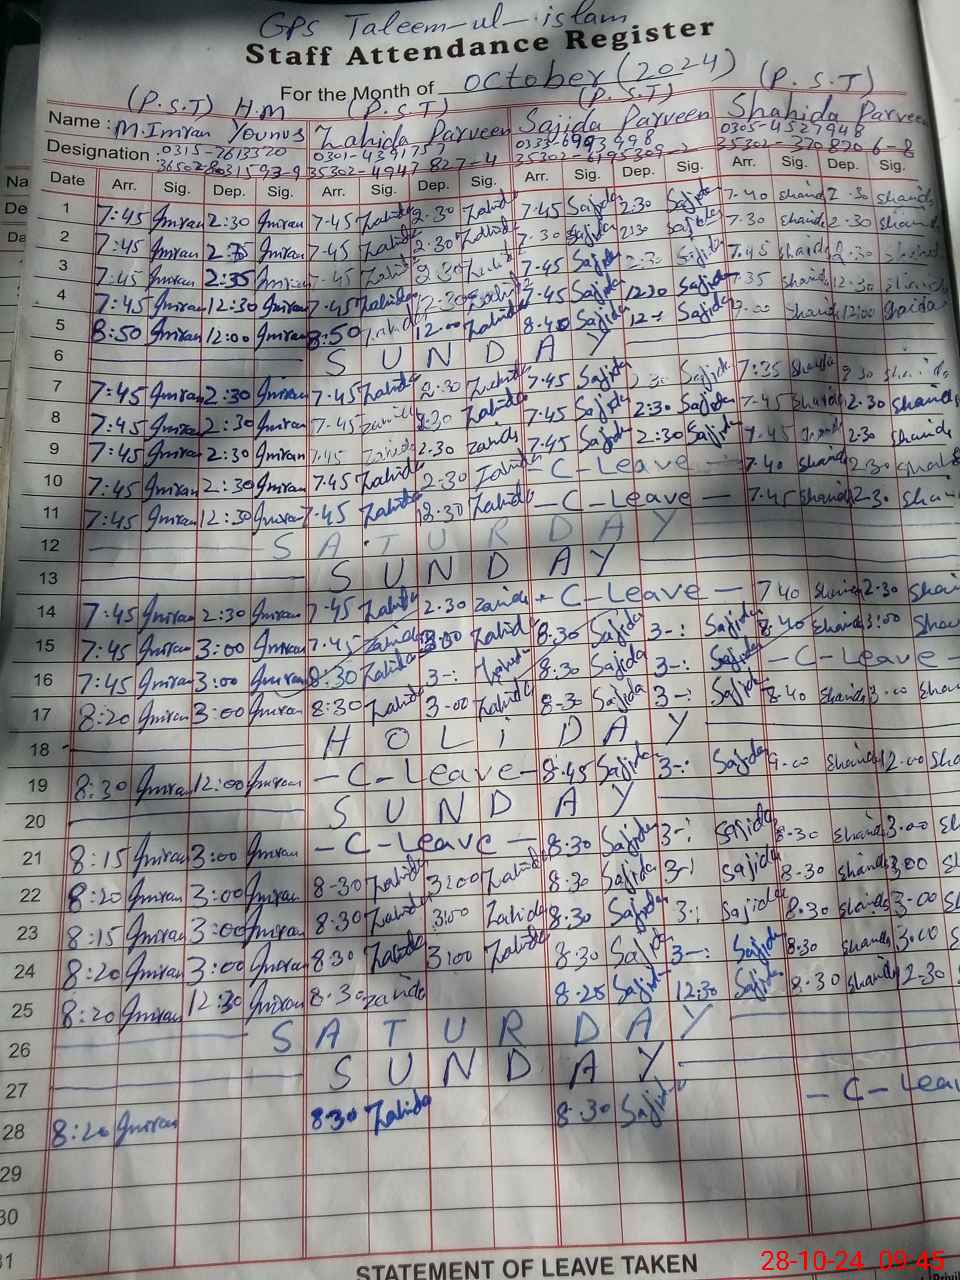 GPS Taleem-ul-islam
Staff Attendance Register
For the Month of October (2024)
(P.S.T) H.M (P.S.T) (P.S.T) (P.S.T)
Name : M.Imran Younus Zahida Parveen Sajida Parveen Shahida Parveen
Designation : 0315-7613320 0301-4391757 0333-6993998 0305-4527948
35302-4947827-4 35302-6195309-2 35302-3708706-8
Date Arr. Sig. Dep. Sig. Arr. Sig. Dep. Sig. Arr. Sig. Dep. Sig. Arr. Sig. Dep. Sig.
1 7:45 Imran 2:30 Imran 7-45 Zahida 2-30 Zahida 7-45 Sajida 2:30 Sajida 7-40 Shahida 2-30 Shahida
2 7:45 Imran Imran 7-45 Zahida 2-30 Zahida 7-30 Sajida 2:30 Sajida 7-30 Shahida 2-30 Shahida
3 7:45 Imran 2:35 Imran 7-45 Zahida 2-30 Zahida 7-45 Sajida 2:30 Sajida 7.45 Shahida 2-30 Shahida
4 7:45 Imran 12:30 Imran 7-45 Zahida 12-30 Zahida 7-45 Sajida 12:30 Sajida 7-35 Shahida 12-30 Shahida
5 8:50 Imran 12:00 Imran 8:50 Zahida 12-00 Zahida 8-40 Sajida 12-: Sajida Shahida 12:00 Shahida
6 SUNDAY
7 7:45 Imran 2:30 Imran 7-45 Zahida 2:30 Zahida 7-45 Sajida 2:30 Sajida 7:35 Shahida 2-30 Shahida
8 7:45 Imran 2:30 Imran 7-45 Zahida 2-30 Zahida 7-45 Sajida 2:30 Sajida 7-45 Shahida 2-30 Shahida
9 7:45 Imran 2:30 Imran 7-45 Zahida 2-30 Zahida 7-45 Sajida 2:30 Sajida 7-45 Shahida 2-30 Shahida
10 7:45 Imran 2:30 Imran 7-45 Zahida 2-30 Zahida - C - Leave - 7-40 Shahida 2-30 Shahida
11 7:45 Imran 12:30 Imran 7-45 Zahida Zahida - C - Leave - 7-45 Shahida 2-30 Shahida
12 SATURDAY
13 SUNDAY
14 7:45 Imran 2:30 Imran 7-45 Zahida 2-30 Zahida - C - Leave - 7-40 Shahida 2-30 Shahida
15 7:45 Imran 3:00 Imran 7-45 Zahida 3:00 Zahida 8-30 Sajida 3-: Sajida 8-40 Shahida 3:00 Shahida
16 7:45 Imran 3:00 Imran 8:30 Zahida 3-: Zahida 8:30 Sajida 3-: Sajida - C - Leave -
17 8:20 Imran 3:00 Imran 8:30 Zahida 3-00 Zahida 8-30 Sajida 3-: Sajida 8-40 Shahida 3-00 Shahida
18 HOLiDAY
19 8:30 Imran 12:00 Imran - C - Leave - 8-45 Sajida 3-: Sajida 9-00 Shahida 12-00 Sha
20 SUNDAY
21 8:15 Imran 3:00 Imran - C - Leave - 8-30 Sajida 3-: Sajida 8-30 Shahida 3-00 Sh
22 8:20 Imran 3:00 Imran 8-30 Zahida 3:00 Zahida 8-30 Sajida 3-: Sajida 8-30 Shahida 3:00 Sh
23 8:15 Imran 3:00 Imran 8:30 Zahida 3:00 Zahida 8-30 Sajida 3-: Sajida 8-30 Shahida 3-00 Sh
24 8:20 Imran 3:00 Imran 8:30 Zahida 3:00 Zahida 8-30 Sajida 3-: Sajida 8-30 Shahida 3-00 Sh
25 8:20 Imran 12:30 Imran 8-30 Zahida 8-25 Sajida 12:30 Sajida 8-30 Shahida 2-30 S
26 SATURDAY
27 SUNDAY
28 8:20 Imran 8:30 Zahida 8-30 Sajida - C - Leave
29
30
31
STATEMENT OF LEAVE TAKEN
28-10-24 09:45